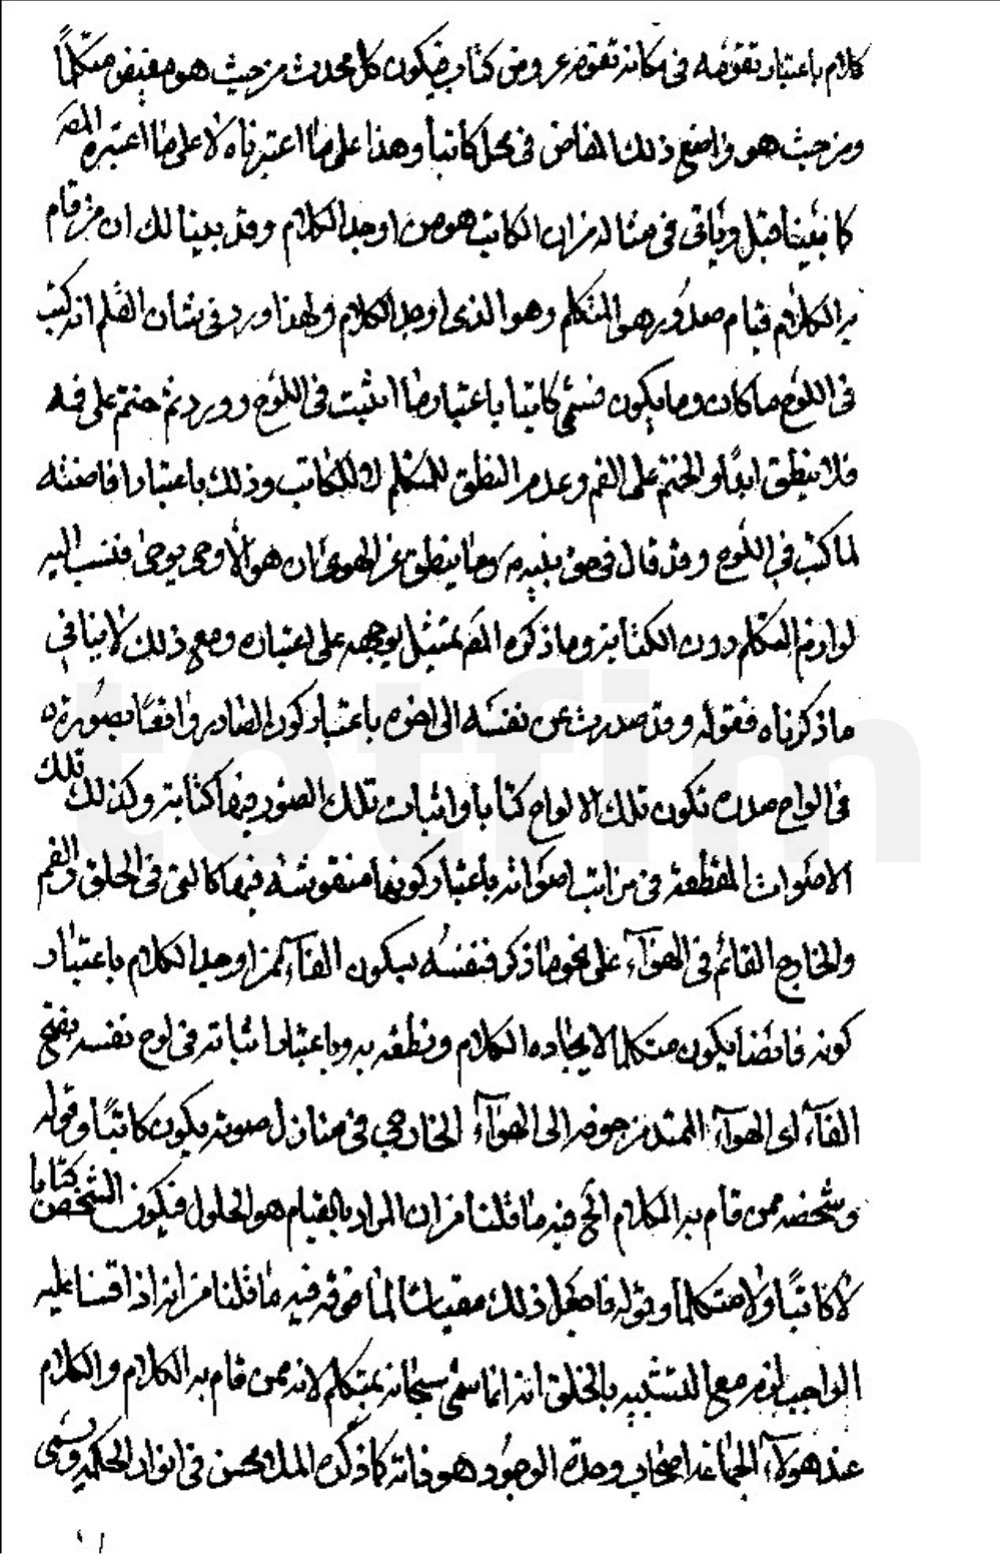 كلام باعتبار تقومه فى مكانه تقومه عروض كتاب فيكون كل محدث من حيث هو مفيض متكلماً
ومن حيث هو واضع ذلك المفاض فى محل كاتباً وهذا على ما اعتبرناه لا على ما اعتبره المص
كما بيناه قبل وياتى فى مثاله من ان الكاتب هو من اوجد الكلام وقد بينا لك ان من قام
به الكلام قيام صدور هو المتكلم وهو الذى اوجد الكلام ولهذا ورد فى شان القلم انه كتب
فى اللوح ما كان وما يكون فسمى كاتبا باعتبار ما اثبت فى اللوح وورد ثم ختم على فيه
فلا ينطق ابداً والختم على الفم وعدم النطق للمتكلم لا للكاتب وذلك باعتبار افاضته
لما كتب فى اللوح وقد قال فى حق نبيه ص وما ينطق عن الهوى ان هو الا وحى يوحى فنسب اليه
لوازم المتكلم دون الكتابة وما ذكره المص تمثيل يوجهه على اعتباره ومع ذلك لا ينافى
ما ذكرناه فقوله وقد صدرت عن نفسه الى اخره باعتبار كون الصادر واقعاً بصورته
فى الواح صدره تكون تلك الالواح كتاباً واثبات تلك الصور فيها كتابة وكذلك تلك
الاصوات المقطعة فى مراتب اصواته باعتبار كونها منقوشة فيها كالتى فى الحلق والفم
والخارج القائم فى الهواء على نحو ما ذكر فنفسه بسكون الفاء ممن اوجد الكلام باعتبار
كونه فائضا يكون متكلما لايجاده الكلام ونطقه به وباعتبار اثباته فى لوح نفسه بفتح
الفاء اى الهواء الممتد من جوفه الى الهواء الخارجى فى منازل صوته يكون كاتباً وقوله
وشخصه ممن قام به الكلام الخ فيه ما قلنا من ان المراد بالقيام هو الحلول فيكون الشخص كتابا
لا كاتباً ولا متكلماً وقوله فاجعل ذلك مقياسا لما فوقه فيه ما قلنا من انه اذا قسنا عليه
الواجب لزم مع التشبيه بالخلق انه انما سمى سبحانه بمتكلم لانه ممن قام به الكلام والكلام
عند هؤلاء الجماعة اصحاب وحدة الوجود هو ذاته كما ذكره الملا محسن فى انوار الحكمة ويسمى